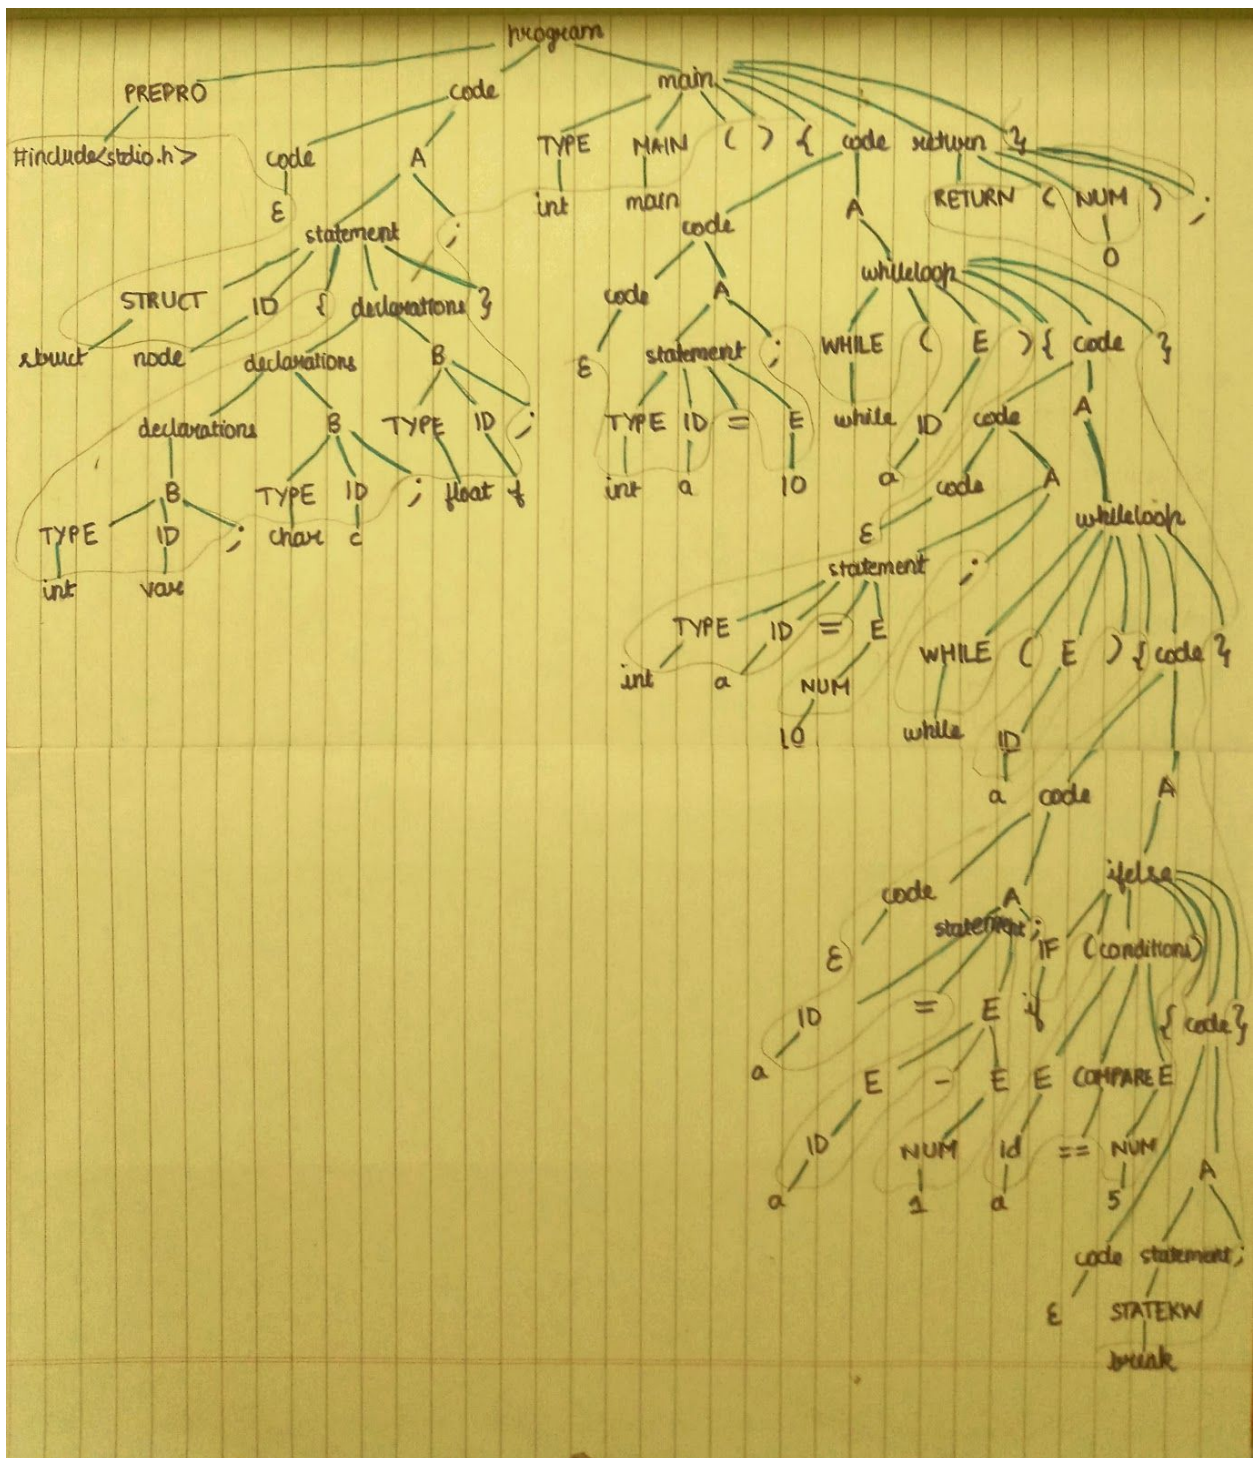 program
PREPRO code main
#include<stdio.h> code A TYPE MAIN ( ) { code return }
ε int main RETURN ( NUM ) ;
statement ; code A 0
STRUCT ID { declarations } code A whileloop
struct node declarations B ε statement ; WHILE ( E ) { code }
declarations B TYPE ID ; TYPE ID = E while ID code A
B TYPE ID ; float f int a 10 a code A whileloop
TYPE ID ; char c ε
int var statement ;
TYPE ID = E WHILE ( E ) { code }
int a NUM
10 while ID
a code A
code A ifelse
statement ; IF (conditions)
ε
ID = E if { code }
a E - E E COMPARE E
ID NUM id == NUM A
a 1 a 5
code statement ;
ε STATEKW
break